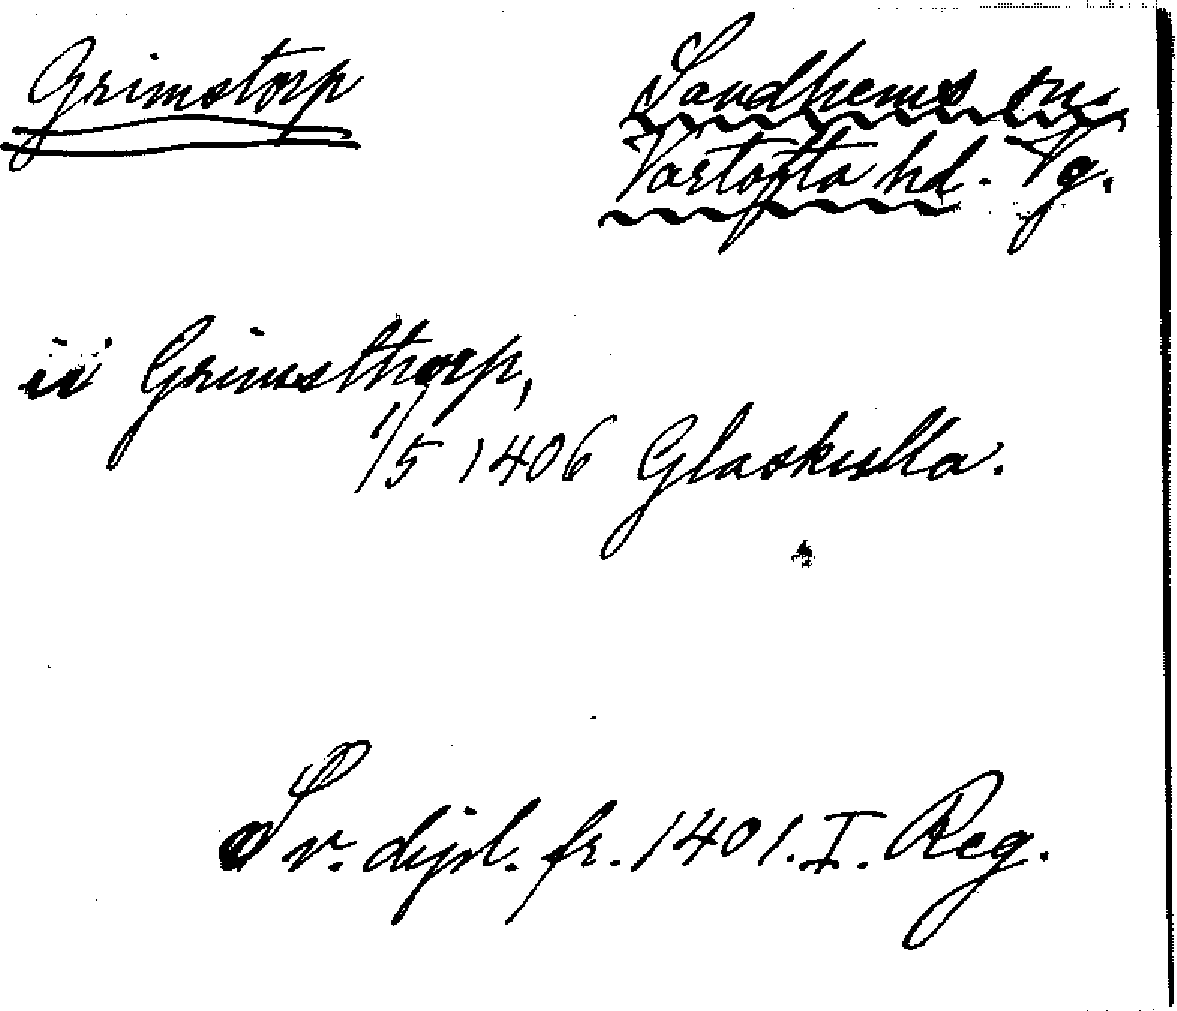 Grimstorp
Sandhems sn.
Vartofta hd. Vg.
ii Grimsthorp,
1/5 1406 Glaskulla.
Sv. dipl. fr. 1401. I. Reg.